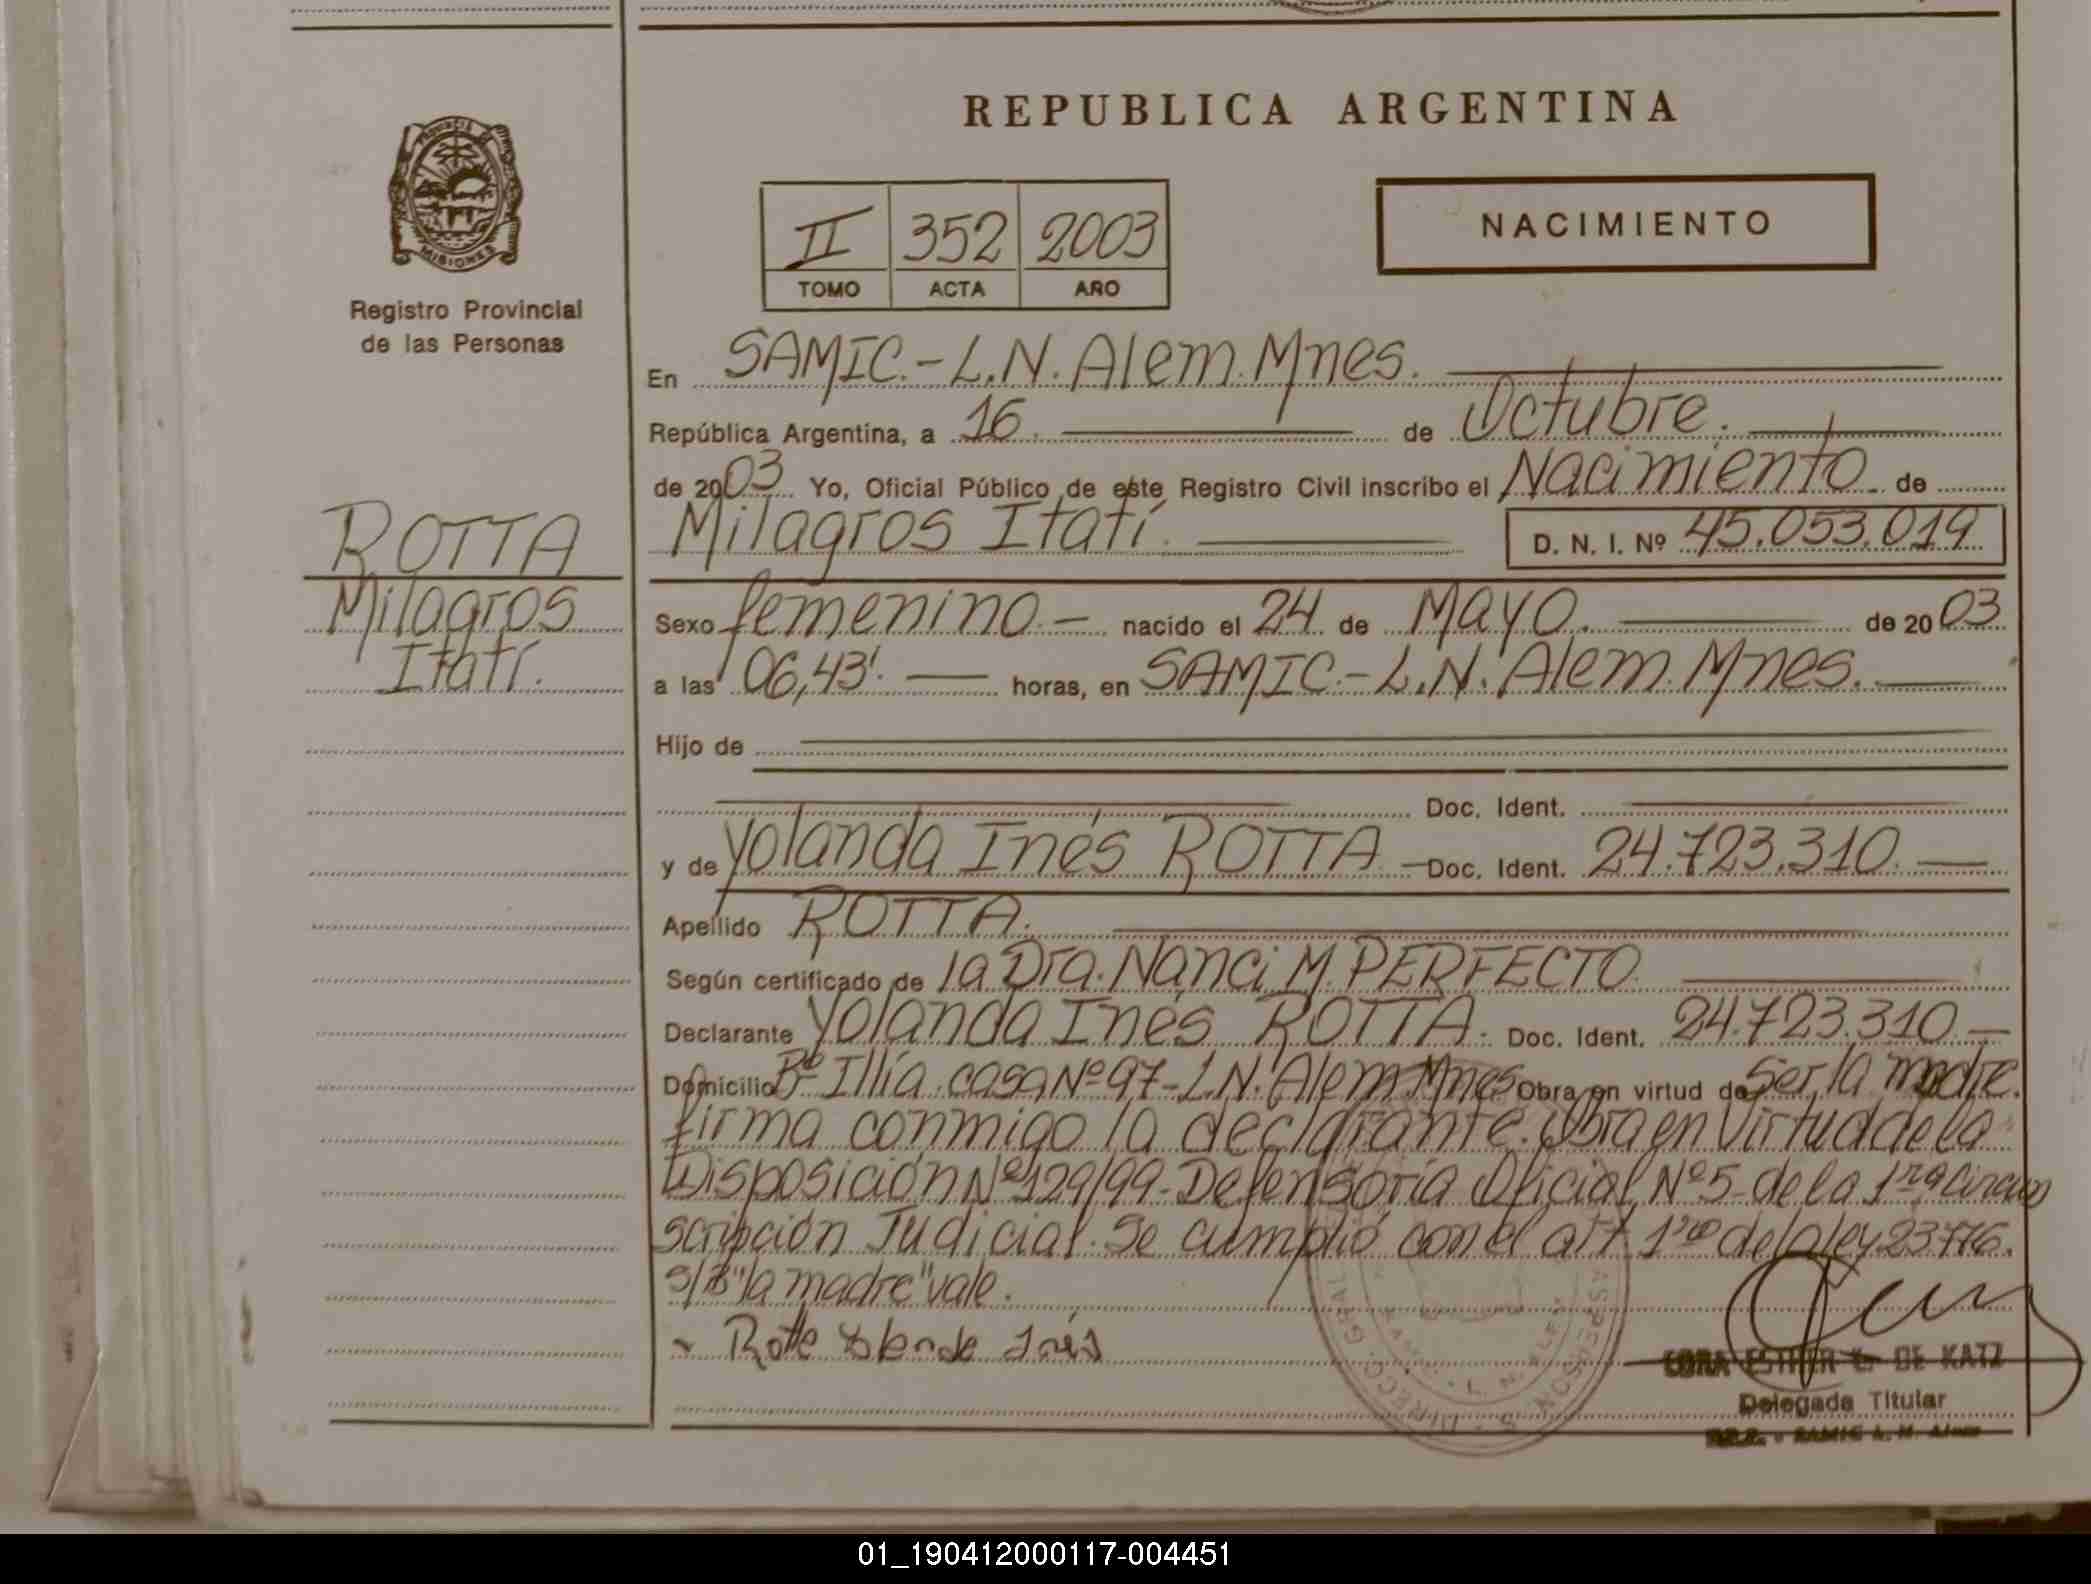 REPUBLICA ARGENTINA
II 352 2003
TOMO ACTA AÑO
NACIMIENTO
PROVINCIA DE
MISIONES
Registro Provincial
de las Personas
ROTTA
Milagros
Itatí.
En SAMIC.-L.N.Alem.Mnes.
República Argentina, a 16. de Octubre.
de 2003 Yo, Oficial Público de este Registro Civil inscribo el Nacimiento de
Milagros Itatí. D. N. I. Nº 45.053.019
Sexo femenino.- nacido el 24 de Mayo. de 2003
a las 06,43'. horas, en SAMIC.-L.N.Alem.Mnes.
Hijo de
Doc. Ident.
y de Yolanda Inés ROTTA.- Doc. Ident. 24.723.310.
Apellido ROTTA.
Según certificado de la Dra. Nanci M. PERFECTO.
Declarante Yolanda Inés ROTTA. Doc. Ident. 24.723.310.-
Domicilio Bº Illía.casa Nº97-L.N.Alem Mnes Obra en virtud de Ser la madre.
firma conmigo la declarante. Obra en Virtud de la
Disposición Nº129/99-Defensoría Oficial Nº5-de la 1ra Circun
scripción Judicial. Se cumplió con el art 1ro de la ley 23776.
S/B "la madre" vale.
Rotta Yolanda Inés
DE KATZ
Delegada Titular
SAMIC L. N. Alem
DIRECC. GRAL. PERSONAS
L. N. ALEM
01_190412000117-004451